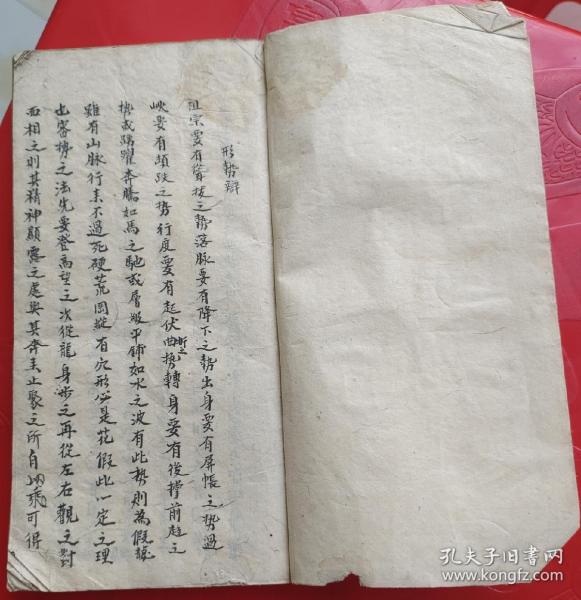 形勢辯
祖宗要有聳拔之勢落脉要有降下之勢出身要有屏帳之勢過
峽要有頓跌之势行度要有起伏曲折之势轉身要有後撐前趋之
势或踴躍奔騰如馬之馳或層級平鋪如水之波有此势則為假
雖有山脉行来不過死硬荒岡縱有穴形必是花假此一定之理
也審势之法先要登高望之次從龍身步之再從左右觀之對
面相之則其精神顯露之處與其奔来止聚之所自可得
孔夫子旧书网
www.kongfz.com